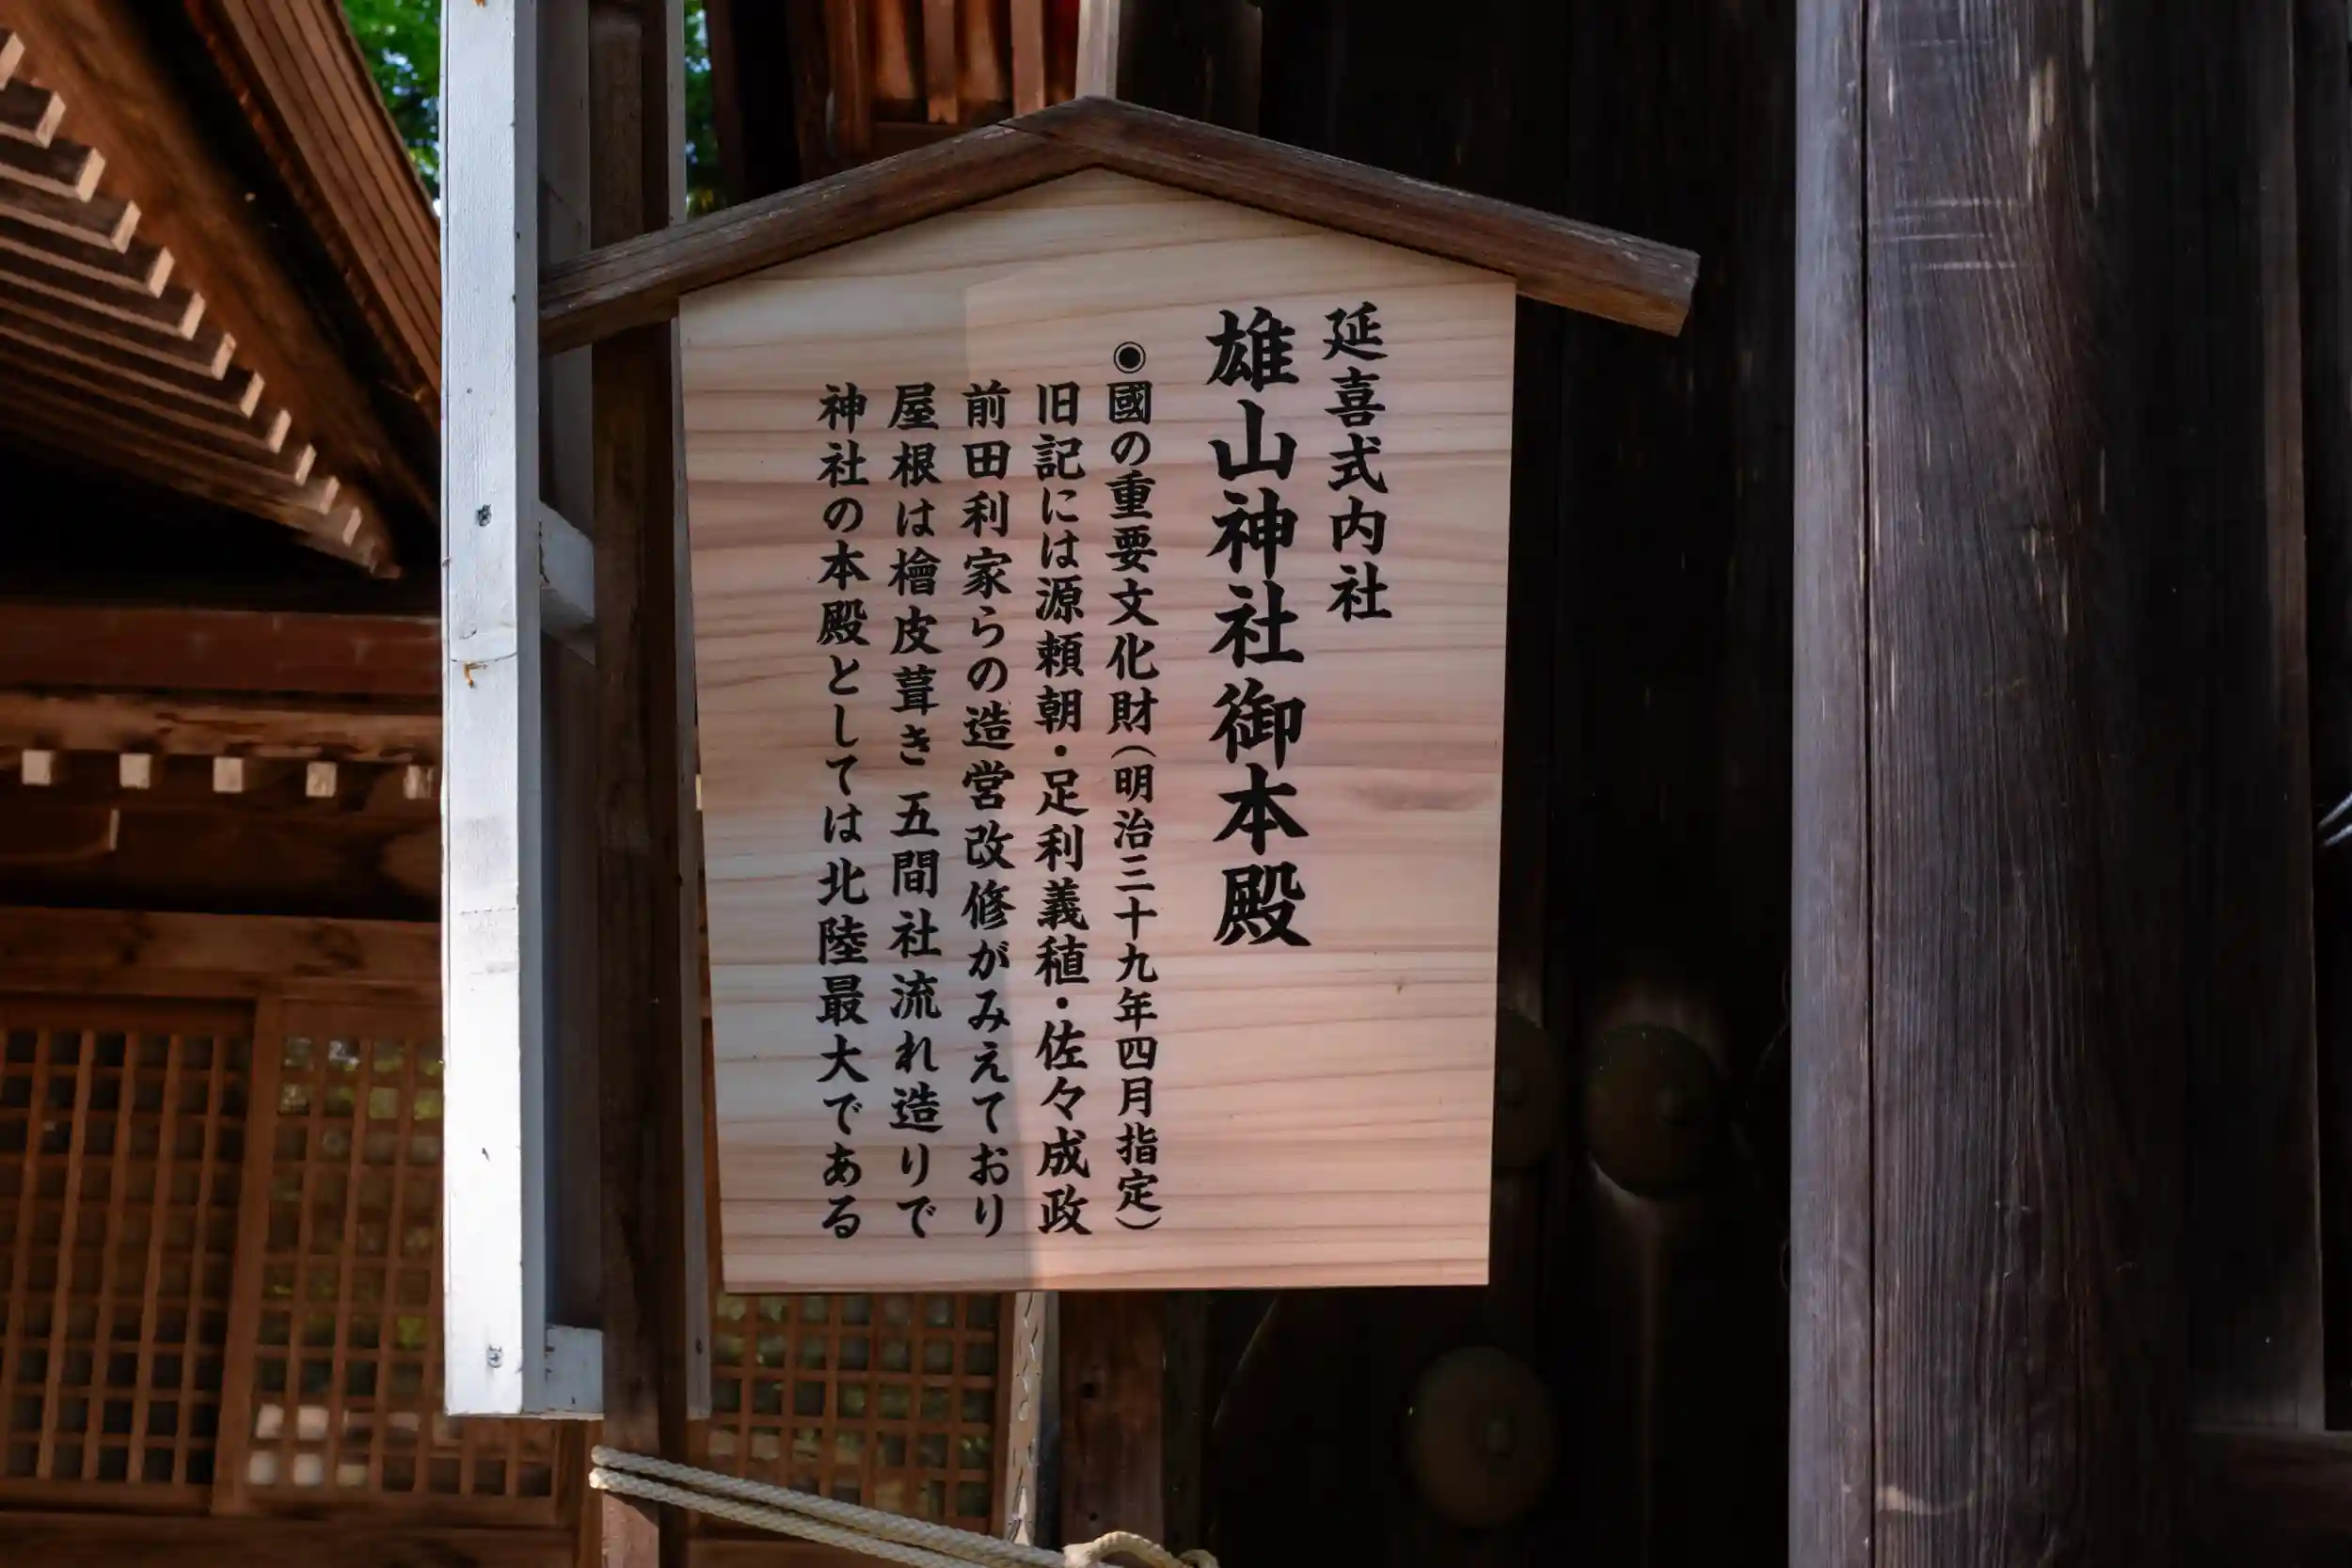 延喜式内社
雄山神社御本殿
◉國の重要文化財（明治三十九年四月指定）
旧記には源頼朝・足利義稙・佐々成政
前田利家らの造営改修がみえており
屋根は檜皮葺き 五間社流れ造りで
神社の本殿としては北陸最大である